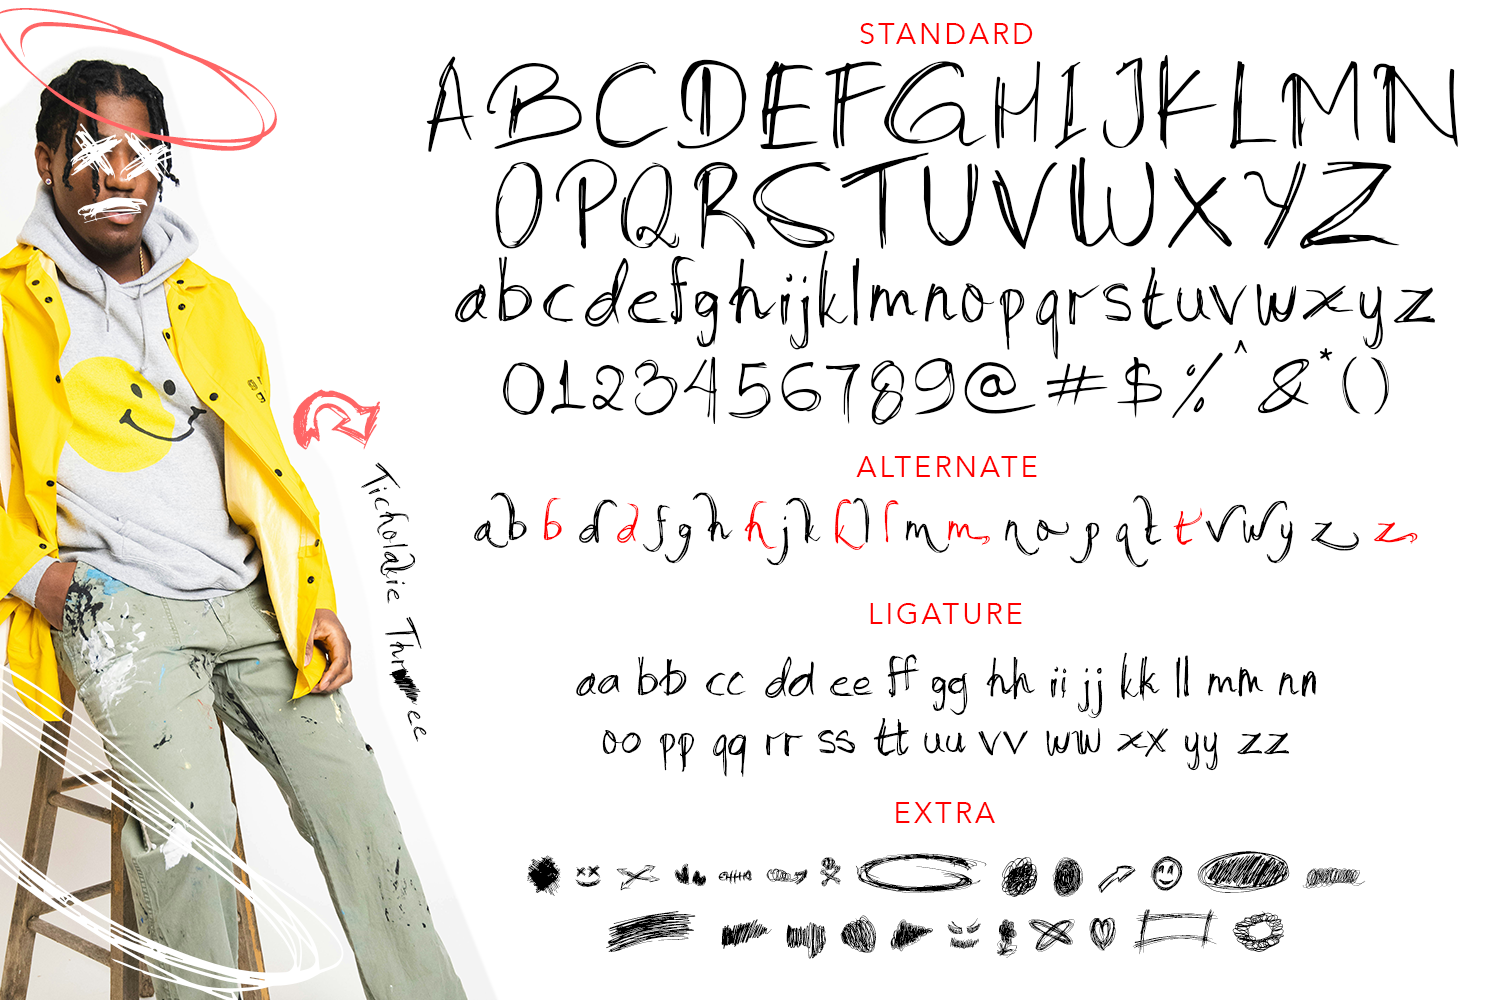 STANDARD
ABCDEFGHIJKLMN
OPQRSTUVWXYZ
abcdefghijklmnopqrstuvwxyz
0123456789@#$%^&*()
ALTERNATE
abbddfghhjkkllmmnopqttvwyzz
LIGATURE
aa bb cc dd ee ff gg hh ii jj kk ll mm nn
oo pp qq rr ss tt uu vv ww xx yy zz
EXTRA
Ticholdie Three